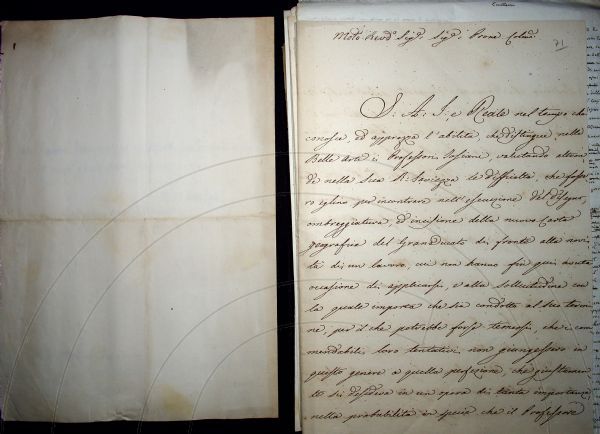 Molto Rev.do Sig.re Sig.re Prone Colmo
71
S: A: I: e Reale nel tempo che
conosce, ed apprezza l'abilità, che distingue nelle
Belle Arti i Professori Toscani, valutando altron
de nella Sua R: Saviezza le difficoltà, che
ro eglino per incontrare nell'esecuzione del disegno,
ombreggiatura, ed incisione della nuova Carta
geografica del GranDucato di fronte alla novi
tà di un lavoro, cui non hanno fin qui avuta
occasione di applicarsi, e alla sollecitudine con
la quale importa che sia condotto al suo termi
ne, per il che potrebbe forse temersi, che i com
mendabili loro tentativi non giungessero in
questo genere a quella perfezione, che giustamen
te si desidera in un'opera di tanta importanza,
nella probabilità in specie che il Professore